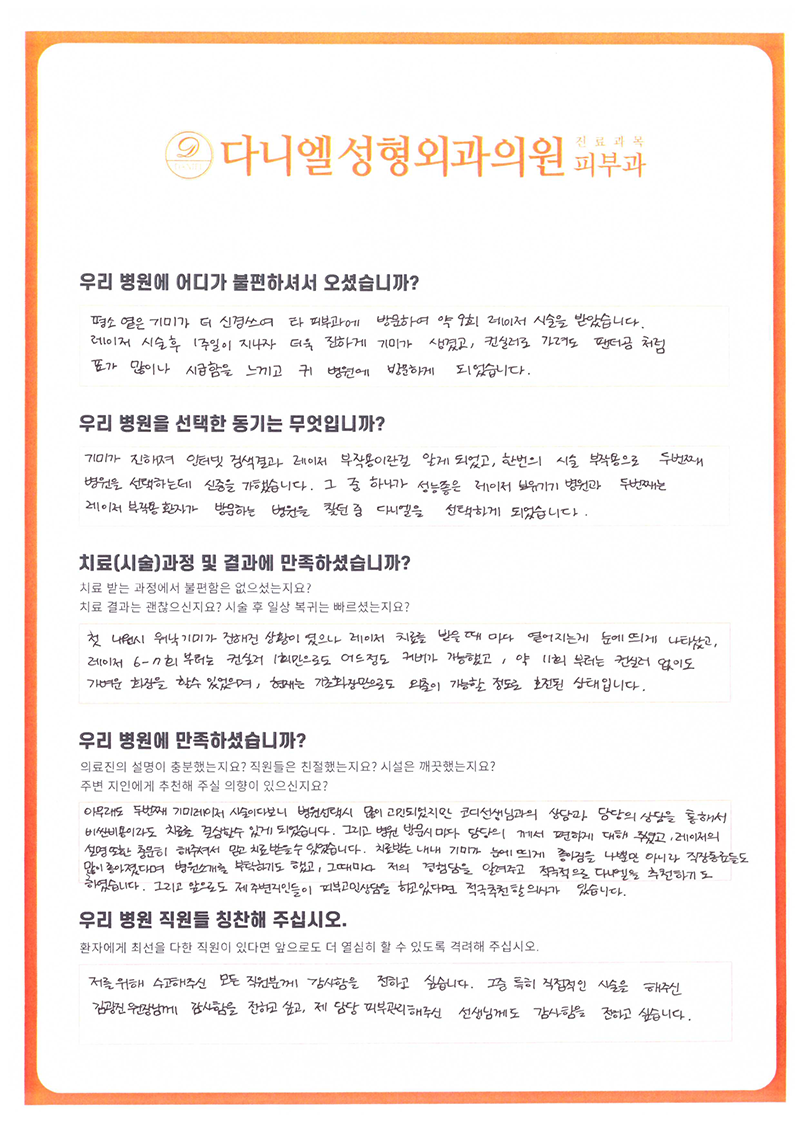 다니엘성형외과의원 진료과목 피부과
우리 병원에 어디가 불편하셔서 오셨습니까?
평소 옅은 기미가 더 신경쓰여 타 피부과에 방문하여 약 9회 레이저 시술을 받았습니다.
레이저 시술후 1주일이 지나자 더욱 진하게 기미가 생겼고, 컨실러로 가려도 팬더곰 처럼
표가 많이나 시급함을 느끼고 귀 병원에 방문하게 되었습니다.
우리 병원을 선택한 동기는 무엇입니까?
기미가 진해져 인터넷 검색결과 레이저 부작용이란걸 알게 되었고, 한번의 시술 부작용으로 두번째
병원을 선택하는데 신중을 가했습니다. 그 중 하나가 성능좋은 레이저 보유기기 병원과 두번째는
레이저 부작용 환자가 방문하는 병원을 찾던 중 다니엘을 선택하게 되었습니다.
치료(시술)과정 및 결과에 만족하셨습니까?
치료 받는 과정에서 불편함은 없으셨는지요?
치료 결과는 괜찮으신지요? 시술 후 일상 복귀는 빠르셨는지요?
첫 내원시 워낙 기미가 진해진 상황이 였으나 레이저 치료를 받을 때 마다 옅어지는게 눈에 띄게 나타났고,
레이저 6-7회 부터는 컨실러 1회만으로도 어느정도 커버가 가능했고, 약 11회 부터는 컨실러 없이도
가벼운 화장을 할수 있었으며, 현재는 기초화장만으로도 외출이 가능할 정도로 호전된 상태입니다.
우리 병원에 만족하셨습니까?
의료진의 설명이 충분했는지요? 직원들은 친절했는지요? 시설은 깨끗했는지요?
주변 지인에게 추천해 주실 의향이 있으신지요?
아무래도 두번째 기미레이저 시술이다보니 병원선택시 많이 고민되었지만 코디선생님과의 상담과 담당의 상담을 통해서
비싼비용이라도 치료를 결심할수 있게 되었습니다. 그리고 병원 방문시마다 담당의 께서 편하게 대해 주셨고, 레이저의
설명 또한 충분히 해주셔서 믿고 치료받을수 있었습니다. 치료받는 내내 기미가 눈에 띄게 좋아짐을 나뿐만 아니라 직장동료들도
많이 좋아졌다며 병원소개를 부탁하기도 했고, 그때마다 저의 경험담을 알려주고 적극적으로 다니엘을 추천하기도
하였습니다. 그리고 앞으로도 제 주변지인들이 피부고민상담을 하고있다면 적극추천할 의사가 있습니다.
우리 병원 직원들 칭찬해 주십시오.
환자에게 최선을 다한 직원이 있다면 앞으로도 더 열심히 할 수 있도록 격려해 주십시오.
저를 위해 수고해주신 모든 직원분께 감사함을 전하고 싶습니다. 그중 특히 직접적인 시술을 해주신
김광진 원장님께 감사함을 전하고 싶고, 제 담당 피부관리 해주신 선생님께도 감사함을 전하고 싶습니다.